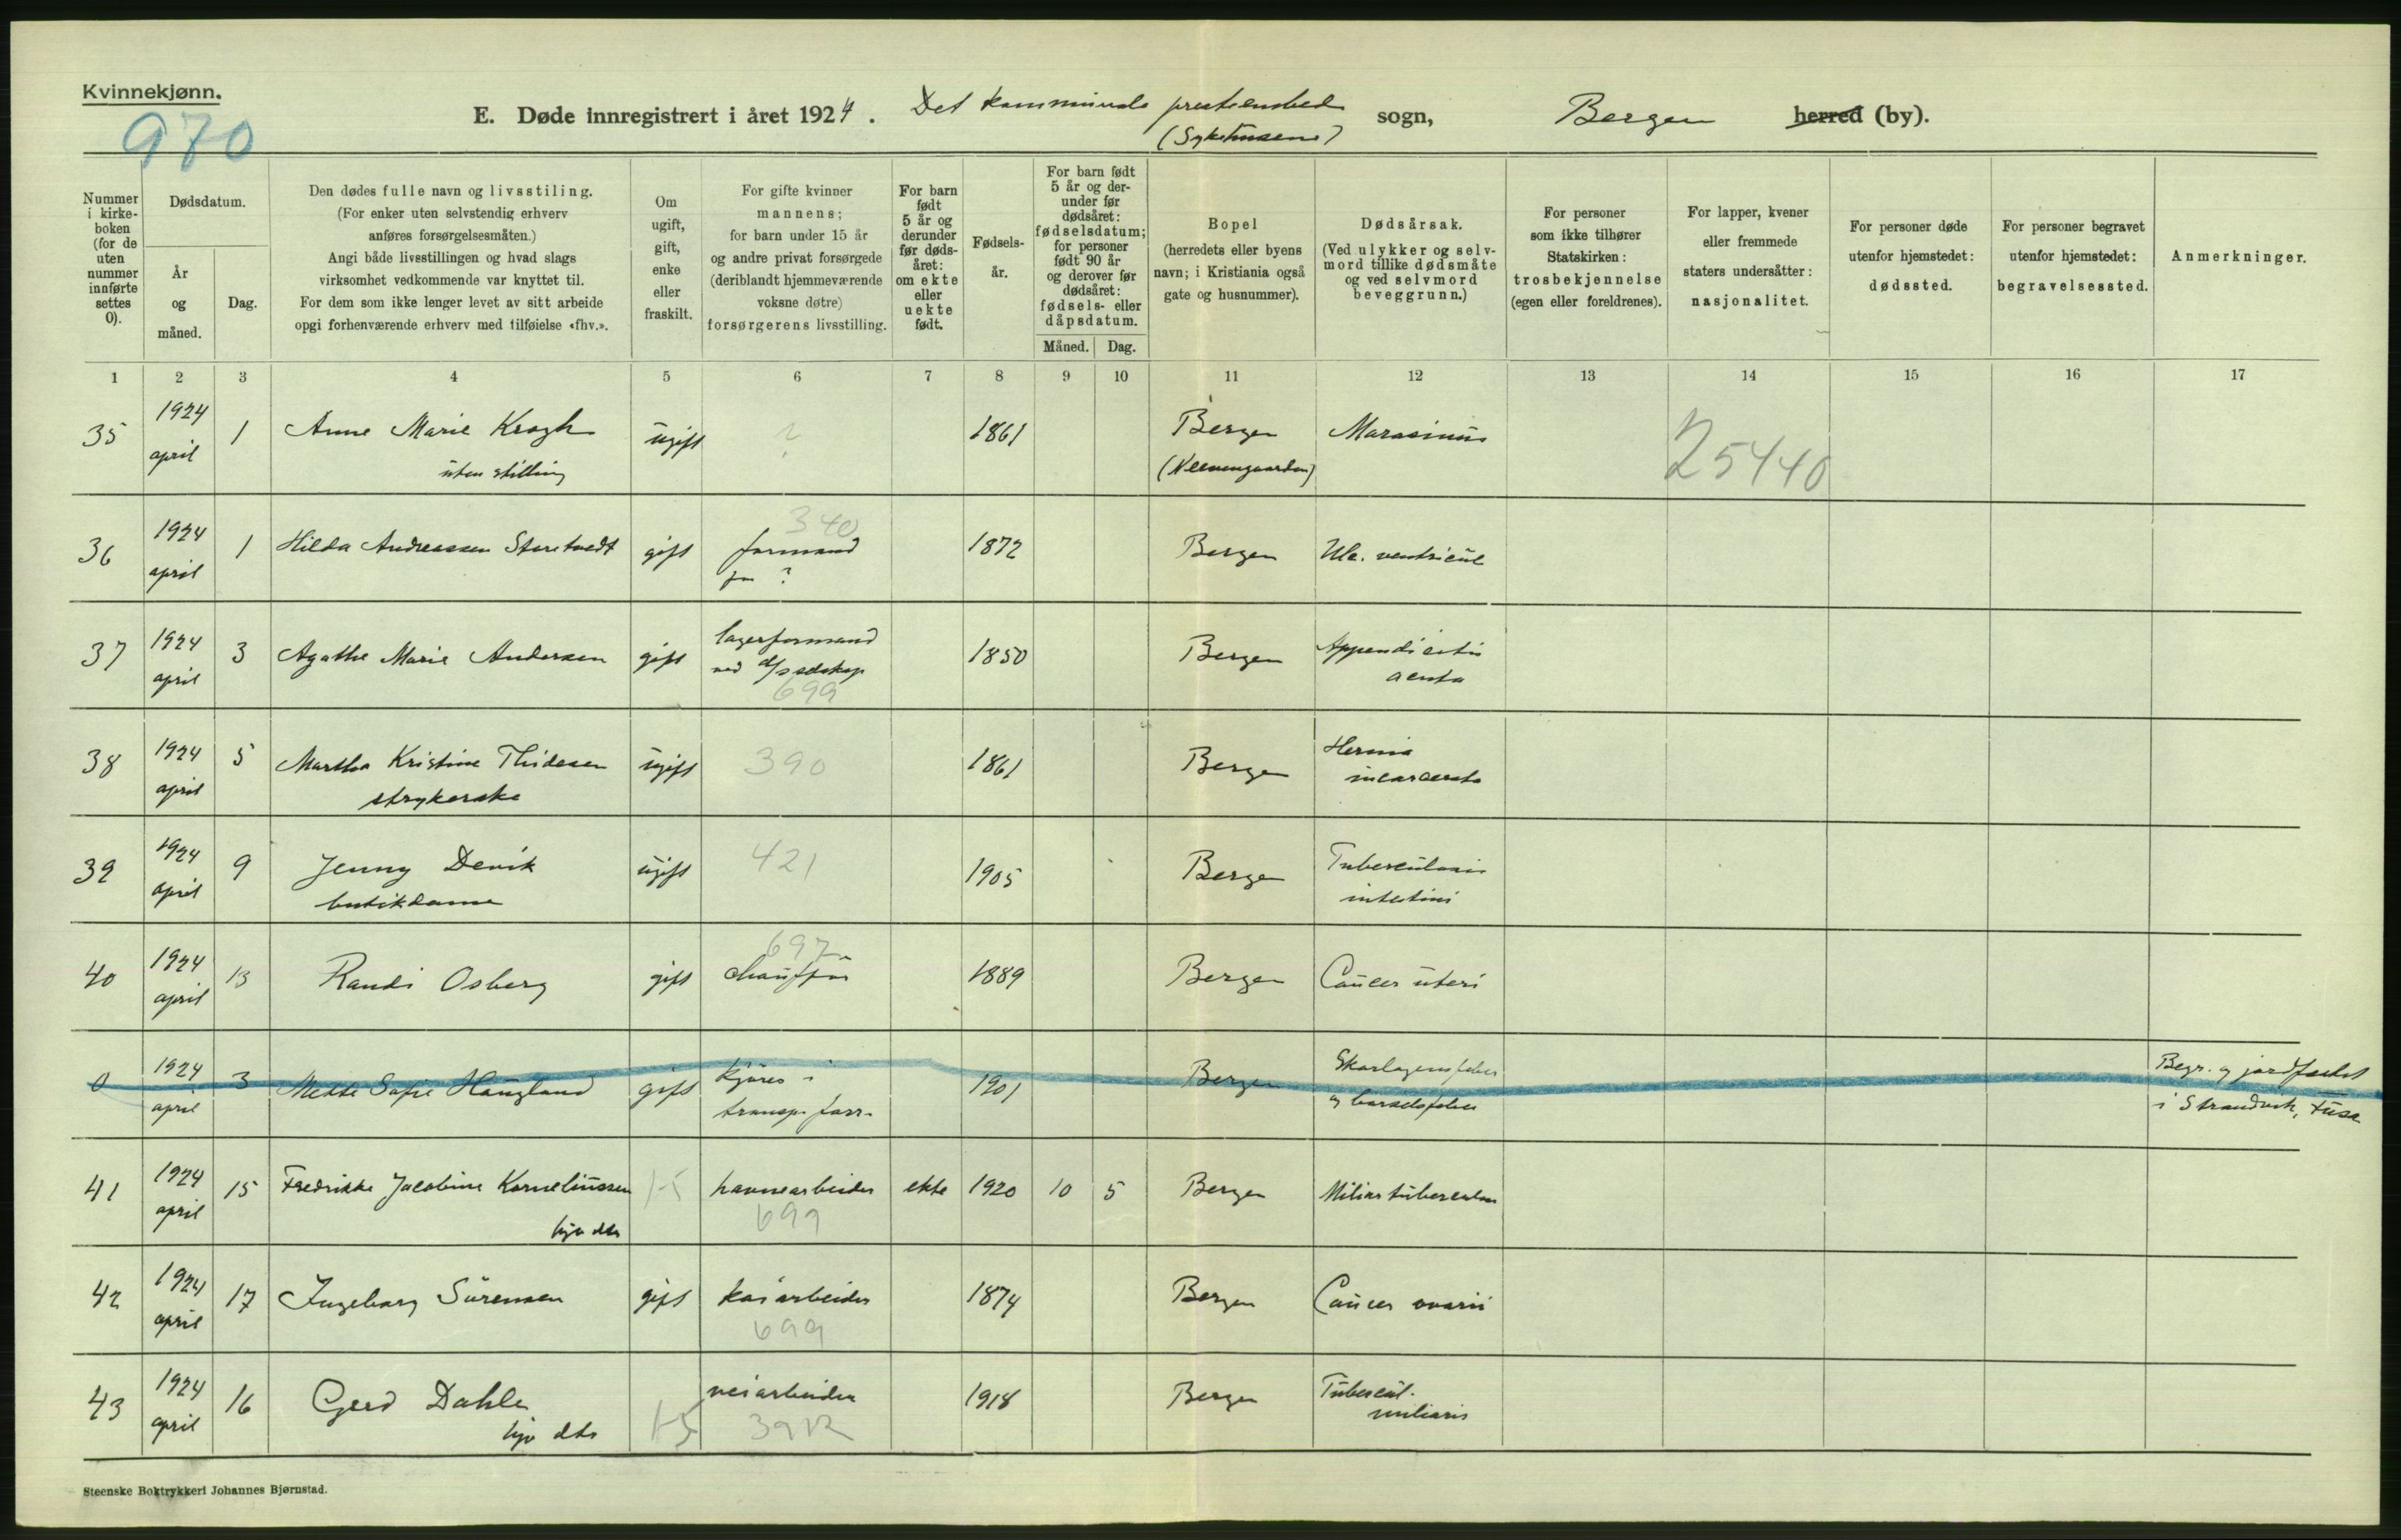 Kvinnekjønn.
970
E. Døde innregistrert i året 1924. Det kommunale presteembed sogn, Bergen herred (by).
(Sykehusene)
Nummer i kirkeboken (for de uten nummer innførte settes 0).
Dødsdatum.
År og måned.
Dag.
Den dødes fulle navn og livsstilling.
(For enker uten selvstendig erhverv
anføres forsørgelsesmåten.)
Angi både livsstillingen og hvad slags
virksomhet vedkommende var knyttet til.
For dem som ikke lenger levet av sitt arbeide
opgi forhenværende erhverv med tilføielse «fhv.».
Om ugift, gift, enke eller fraskilt.
For gifte kvinner
mannens;
for barn under 15 år
og andre privat forsørgede
(deriblandt hjemmeværende
voksne døtre)
forsørgerens livsstilling.
For barn født 5 år og derunder før dødsåret: om ekte eller uekte født.
Fødselsår.
For barn født
5 år og derunder før
dødsåret:
fødselsdatum;
for personer
født 90 år
og derover før
dødsåret:
fødsels- eller
dåpsdatum.
Måned. Dag.
Bopel
(herredets eller byens
navn; i Kristiania også
gate og husnummer).
Dødsårsak.
(Ved ulykker og selvmord tillike dødsmåte
og ved selvmord
beveggrunn.)
For personer
som ikke tilhører
Statskirken:
trosbekjennelse
(egen eller foreldrenes).
For lapper, kvener
eller fremmede
staters undersåtter:
nasjonalitet.
For personer døde
utenfor hjemstedet:
dødssted.
For personer begravet
utenfor hjemstedet:
begravelsessted.
Anmerkninger.
1 2 3 4 5 6 7 8 9 10 11 12 13 14 15 16 17
35 1924 april 1 Anne Marie Krogh ugift ? 1861 Bergen Marasimus 25440
uten stilling (Neevengaarden)
340
36 1924 april 1 Hilda Andreassen Storetvedt gift formand 1872 Bergen Ulc. ventricul
for ?
37 1924 april 3 Agathe Marie Andersen gift lagerformand 1850 Bergen Appendicitis
ved d/s selskap acuta
699
38 1924 april 5 Martha Kristine Thidesen ugift 390 1861 Bergen Hernia
strykerske incarcerata
39 1924 april 9 Jenny Devik ugift 421 1905 Bergen Tuberculosis
butikdame intestini
697
40 1924 april 13 Randi Osberg gift chauffør 1889 Bergen Cancer uteri
0 1924 april 3 Mette Sofie Haugland gift Kjører i 1901 Bergen Skarlagensfeber Begr. og jordfæstet
transp. forr. og barselsfeber i Strandvik, Fusa
41 1924 april 15 Fredrikke Jacobine Korneliussen 1-5 havnearbeider ekte 1920 10 5 Bergen Miliartuberculose
hjv dtr 699
42 1924 april 17 Ingeborg Sørensen gift kaiarbeider 1874 Bergen Cancer ovarii
699
43 1924 april 16 Gerd Dahle veiarbeider 1918 Bergen Tubercul.
hjv dtr 1-5 miliaris
Steenske Boktrykkeri Johannes Bjørnstad.